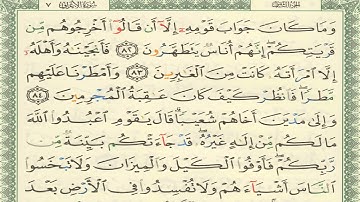 ٧ سُورَةُ الأَعْرَافِ الجُزْءُ الثَّامِنُ
وَمَا كَانَ جَوَابَ قَوْمِهِۦٓ إِلَّآ أَن قَالُوٓا۟ أَخْرِجُوهُم مِّن
قَرْيَتِكُمْ ۖ إِنَّهُمْ أُنَاسٌ يَتَطَهَّرُونَ ٨٢ فَأَنجَيْنَٰهُ وَأَهْلَهُۥٓ
إِلَّا ٱمْرَأَتَهُۥ كَانَتْ مِنَ ٱلْغَٰبِرِينَ ٨٣ وَأَمْطَرْنَا عَلَيْهِم
مَّطَرًا ۖ فَٱنظُرْ كَيْفَ كَانَ عَٰقِبَةُ ٱلْمُجْرِمِينَ ٨٤
وَإِلَىٰ مَدْيَنَ أَخَاهُمْ شُعَيْبًا ۗ قَالَ يَٰقَوْمِ ٱعْبُدُوا۟ ٱللَّهَ
مَا لَكُم مِّنْ إِلَٰهٍ غَيْرُهُۥ ۖ قَدْ جَآءَتْكُم بَيِّنَةٌ مِّن
رَّبِّكُمْ ۖ فَأَوْفُوا۟ ٱلْكَيْلَ وَٱلْمِيزَانَ وَلَا تَبْخَسُوا۟
ٱلنَّاسَ أَشْيَآءَهُمْ وَلَا تُفْسِدُوا۟ فِى ٱلْأَرْضِ بَعْدَ